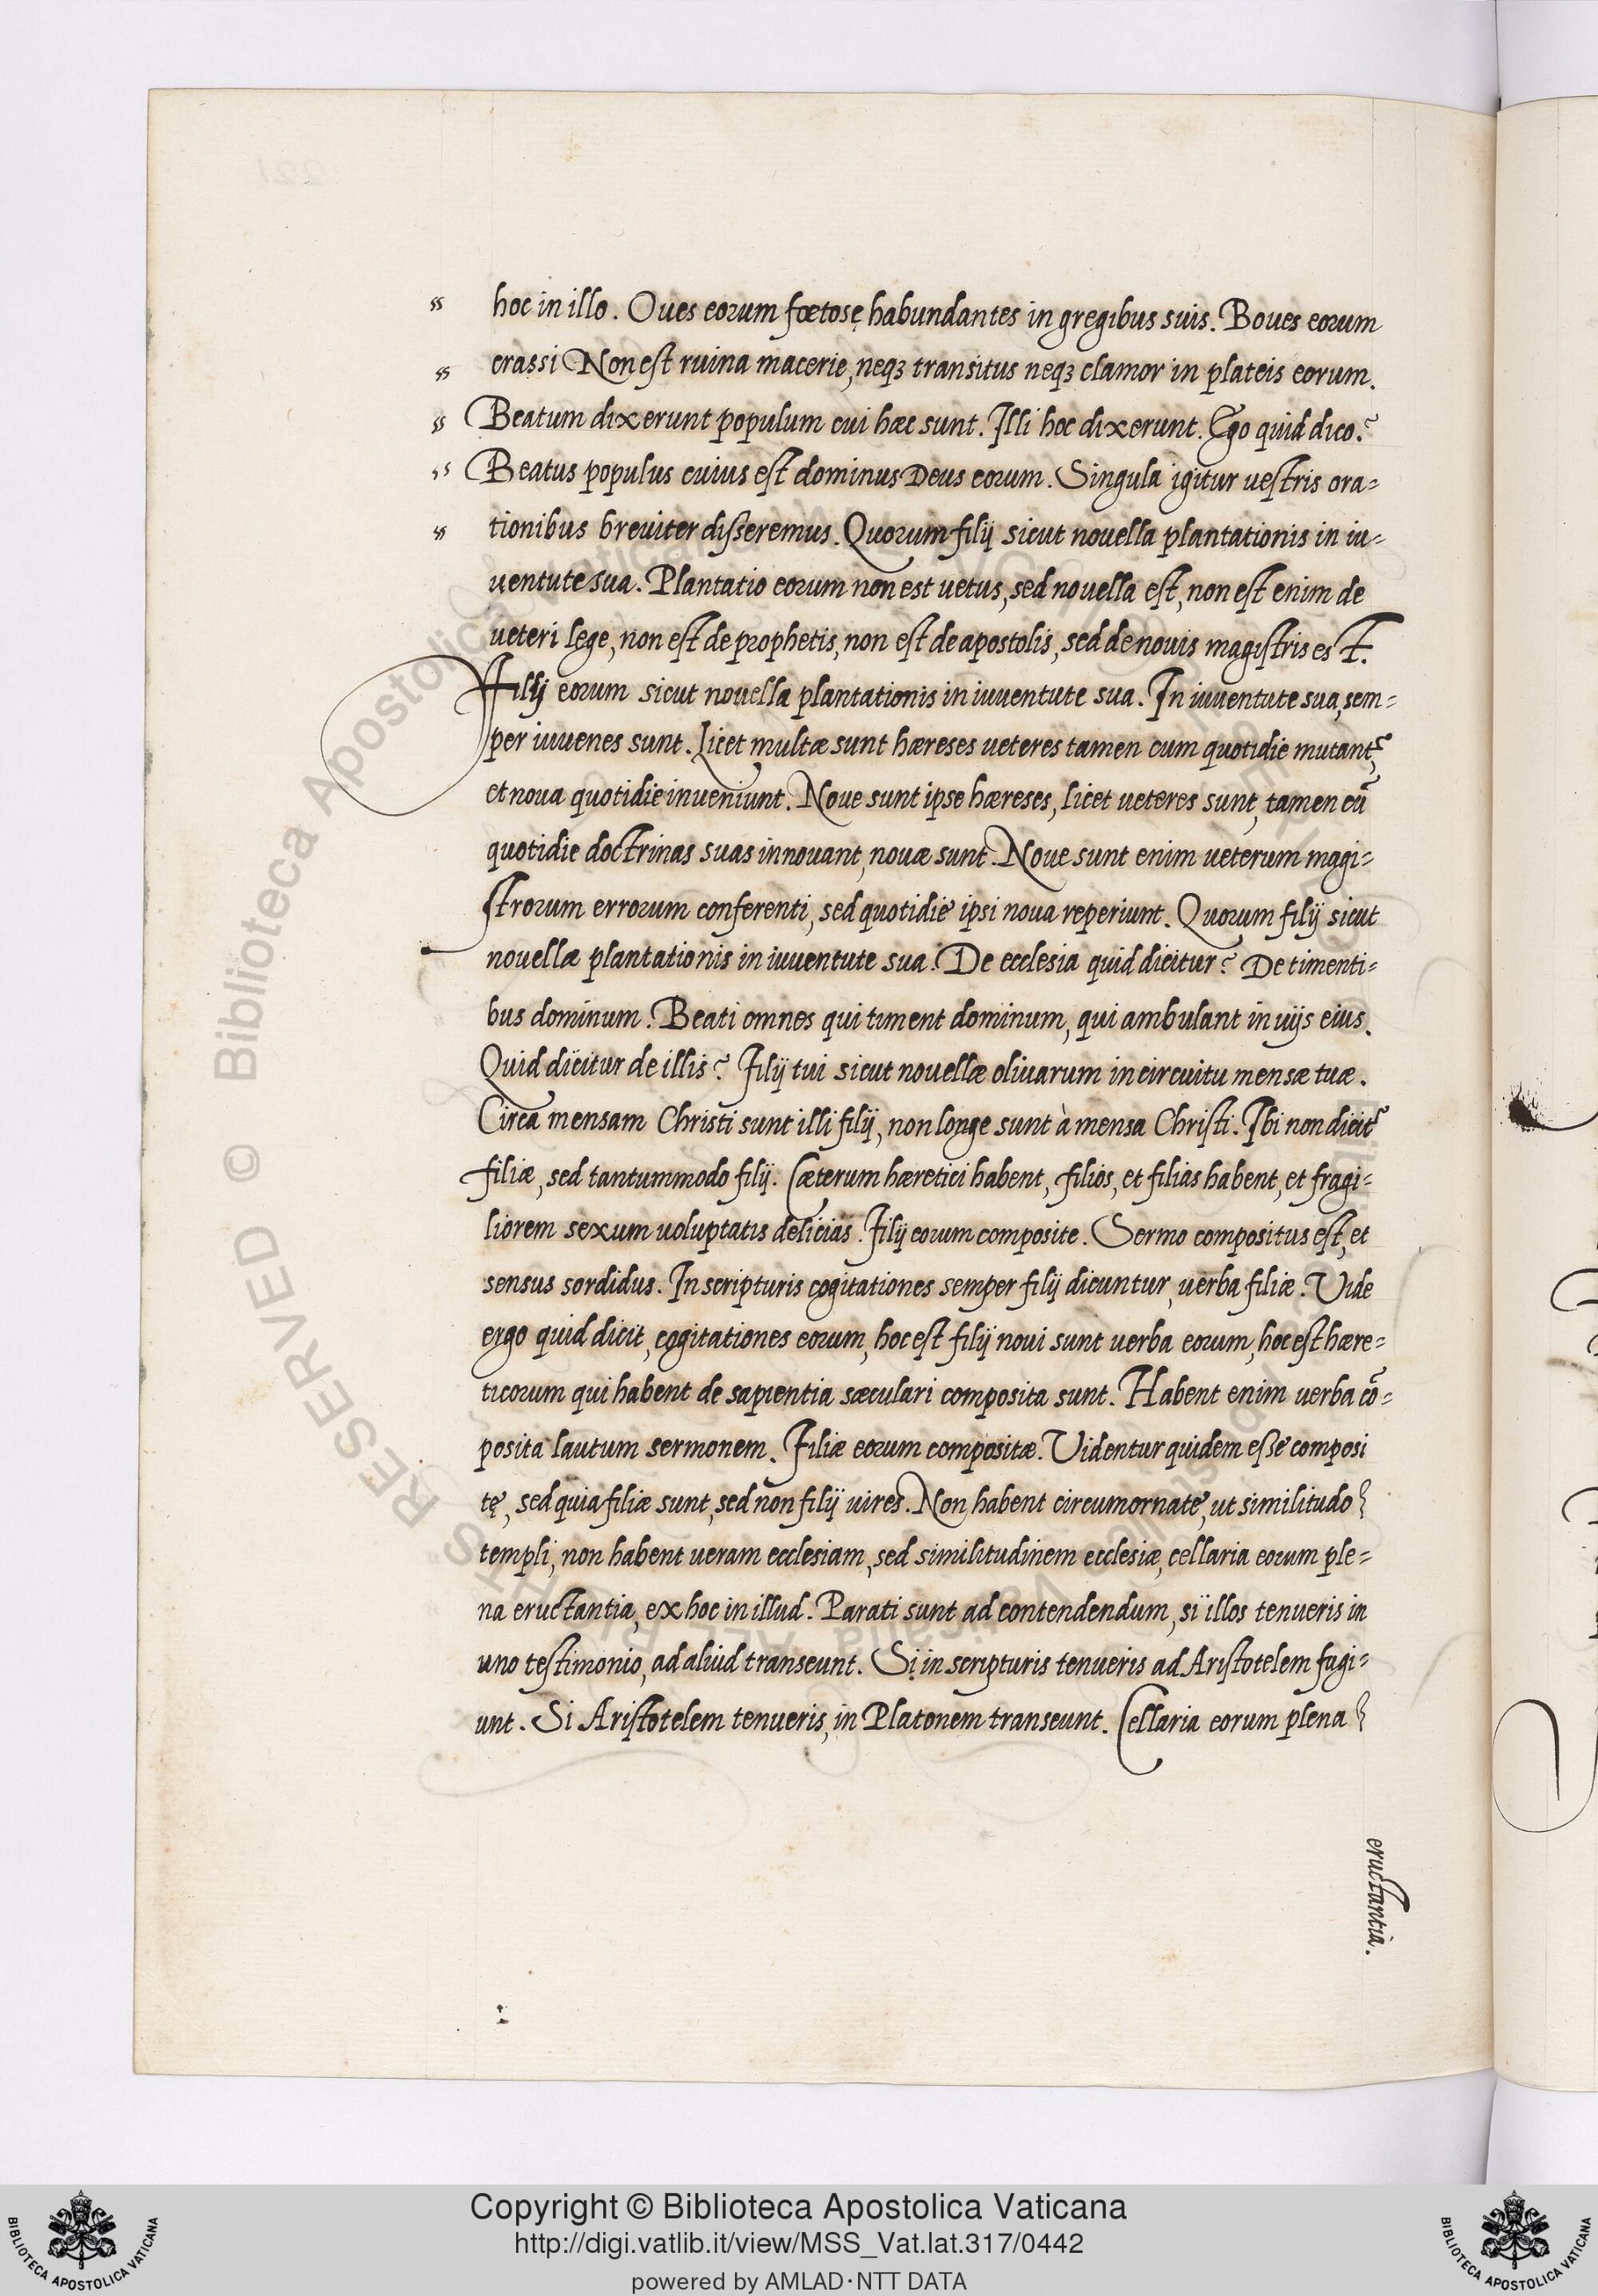 hoc in illo. Oues eorum fœtosę habundantes in gregibus suis. Boues eorum
crassi Non est ruina macerie, neqꝫ transitus neqꝫ clamor in plateis eorum.
Beatum dixerunt populum cui hæc sunt. Illi hoc dixerunt. Ego quid dico?
Beatus populus cuius est dominus Deus eorum. Singula igitur uestris ora=
tionibus breuiter disseremus. Quorum filij sicut nouella plantationis in iu=
uentute sua. Plantatio eorum non est uetus, sed nouella est, non est enim de
ueteri lege, non est de prophetis, non est de apostolis, sed de nouis magistris est.
Filij eorum sicut nouella plantationis in iuuentute sua. In iuuentute sua, sem=
per iuuenes sunt. Licet multæ sunt hæreses ueteres tamen cum quotidie mutant᷑,
et noua quotidie inueniunt. Noue sunt ipse hæreses, licet ueteres sunt, tamen cū
quotidie doctrinas suas innouant, nouæ sunt. Noue sunt enim ueterum magi=
strorum errorum conferenti, sed quotidie ipsi noua reperiunt. Quorum filij sicut
nouellæ plantationis in iuuentute sua. De ecclesia quid dicitur? De timenti=
bus dominum. Beati omnes qui timent dominum, qui ambulant in uijs eius.
Quid dicitur de illis? Filij tui sicut nouellæ oliuarum in circuitu mensæ tuæ.
Circa mensam Christi sunt illi filij, non longe sunt à mensa Christi. Ibi non dicit᷑
filiæ, sed tantummodo filij. Cæterum hæretici habent, filios, et filias habent, et fragi=
liorem sexum uoluptatis delicias. Filij eorum composite. Sermo compositus est, et
sensus sordidus. In scripturis cogitationes semper filij dicuntur, uerba filiæ. Vide
ergo quid dicit, cogitationes eorum, hoc est filij noui sunt uerba eorum, hoc est hære=
ticorum qui habent de sapientia sæculari composita sunt. Habent enim uerba cō=
posita lautum sermonem. Filiæ eorum compositæ. Videntur quidem esse composi
tę, sed quia filiæ sunt, sed non filij uires. Non habent circumornate, ut similitudo
templi, non habent ueram ecclesiam, sed similitudinem ecclesiæ, cellaria eorum ple=
na eructantia, ex hoc in illud. Parati sunt ad contendendum, si illos tenueris in
uno testimonio, ad aliud transeunt. Si in scripturis tenueris ad Aristotelem fugi=
unt. Si Aristotelem tenueris, in Platonem transeunt. Cellaria eorum plena
eructantia.
© Biblioteca Apostolica Vaticana
RESERVED
Copyright © Biblioteca Apostolica Vaticana
http://digi.vatlib.it/view/MSS_Vat.lat.317/0442
powered by AMLAD·NTT DATA
BIBLIOTECA APOSTOLICA VATICANA
BIBLIOTECA APOSTOLICA VATICANA